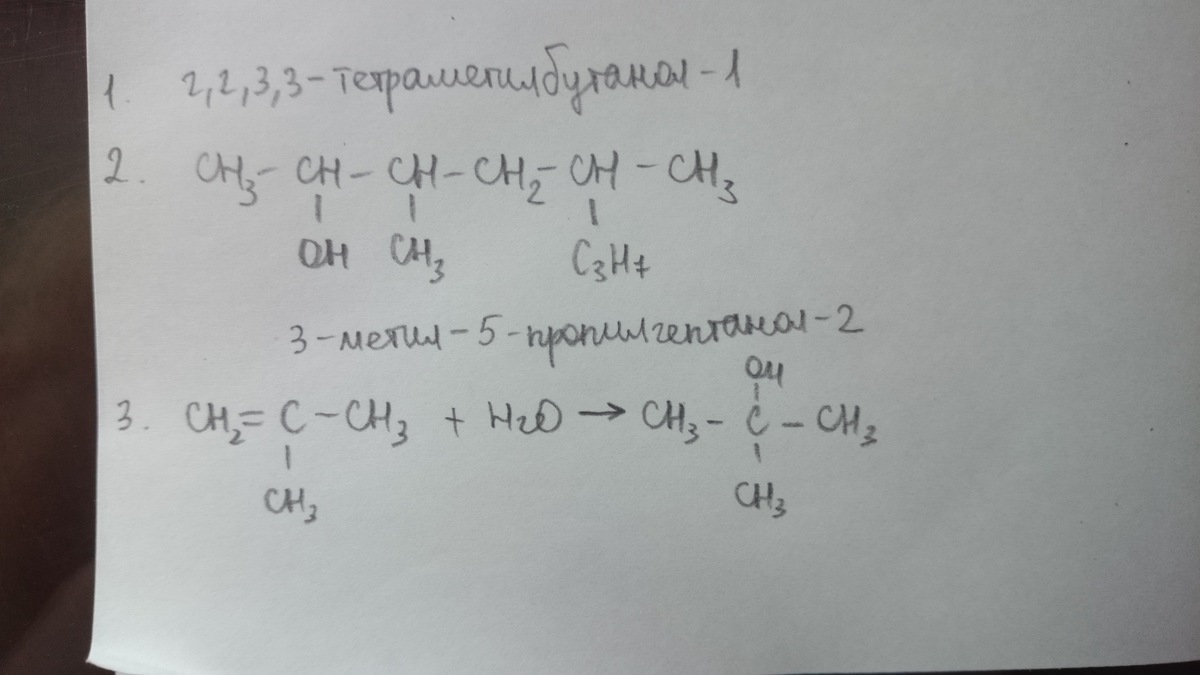 1. 2,2,3,3-тетраметилбутанол-1
2. CH3-CH-CH-CH2-CH-CH3
OH CH3 C3H7
3-метил-5-пропилгептанол-2
OH
3. CH2=C-CH3 + H2O → CH3-C-CH3
CH3 CH3